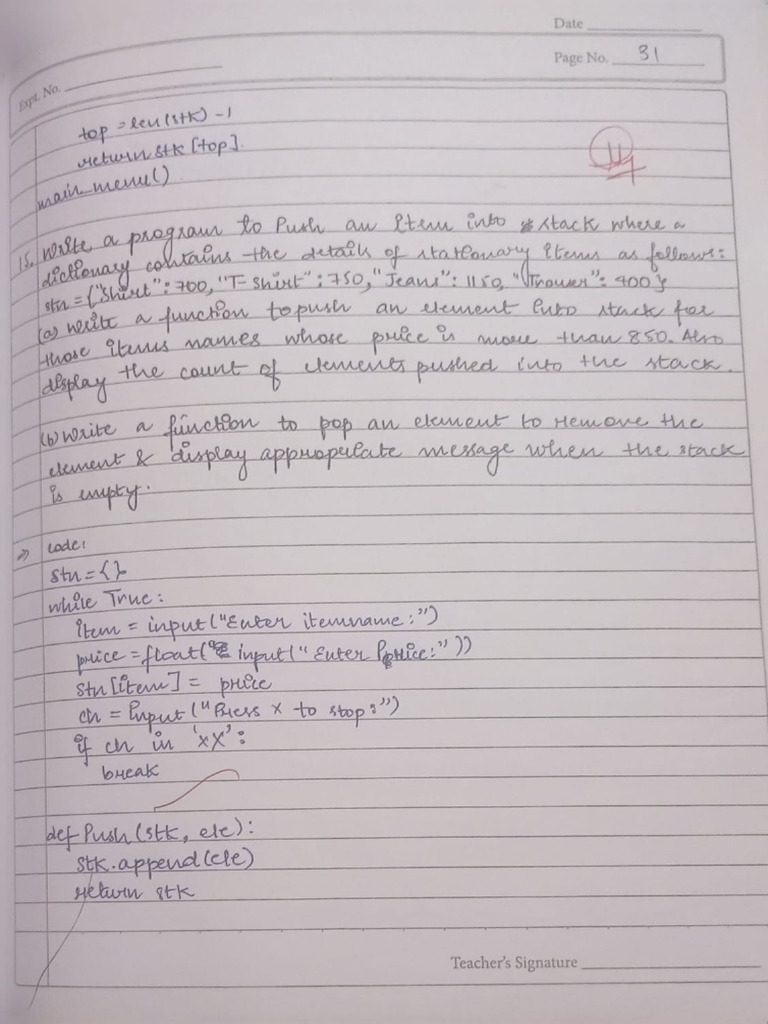 Date
Page No. 31
Expt. No.
top = len(stk) -1
return stk [top]
main_menu()
15. Write a program to Push an Item into stack where a
dictionary contains the details of stationary items as follows:
stn = {"Shirt": 700, "T-Shirt": 750, "Jeans": 1150, "Trouser": 400}
(a) Write a function to push an element into stack for
those items names whose price is more than 850. Also
display the count of elements pushed into the stack.
(b) Write a function to pop an element to remove the
element & display appropulate message when the stack
is empty.
⇒ code:
stn = {}
while True:
item = input("Enter itemname:")
price = float(input("Enter Price:"))
stn[item] = price
ch = input("Press X to stop:")
if ch in 'xX':
break
def Push(stk, ele):
stk.append(ele)
return stk
Teacher's Signature